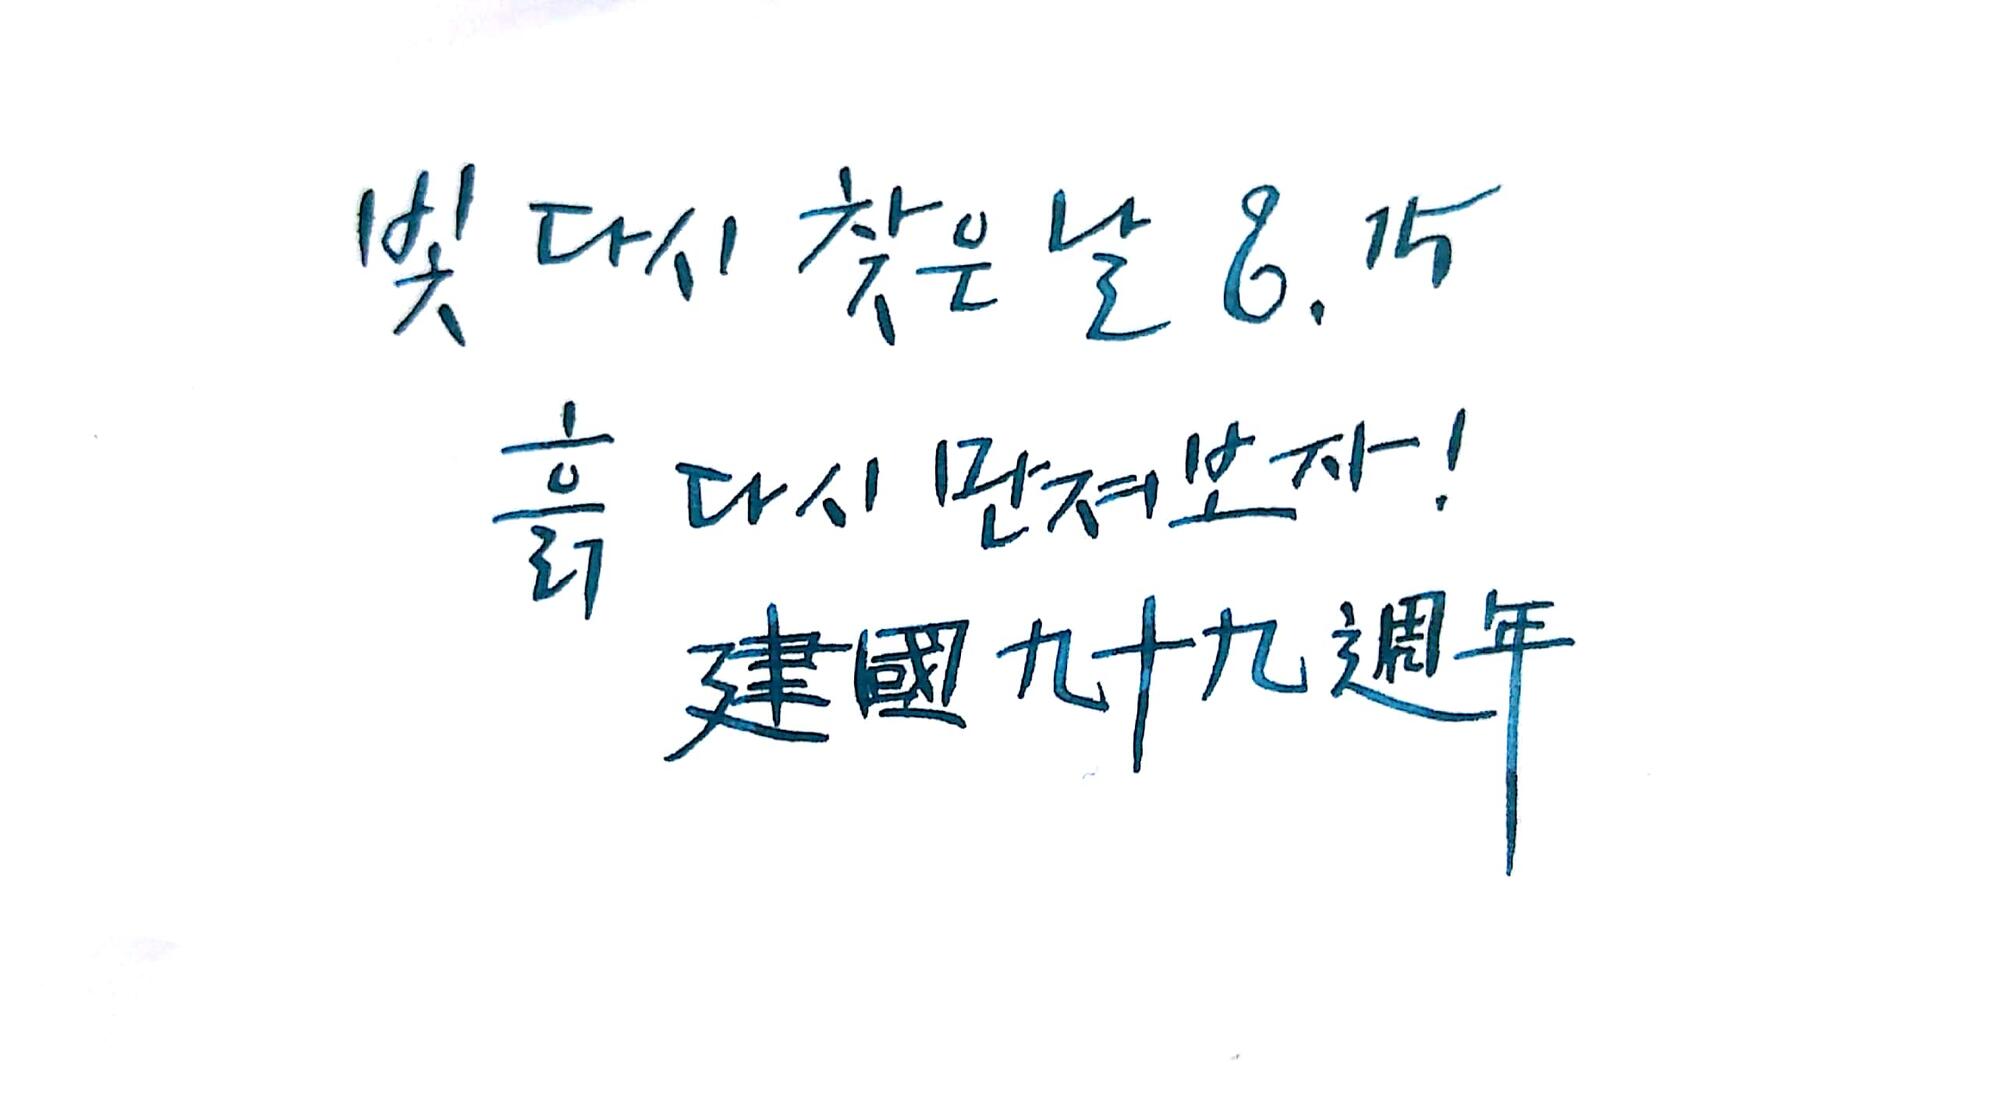 빛 다시 찾은 날 8.15
흙 다시 만져보자!
建國九十九週年